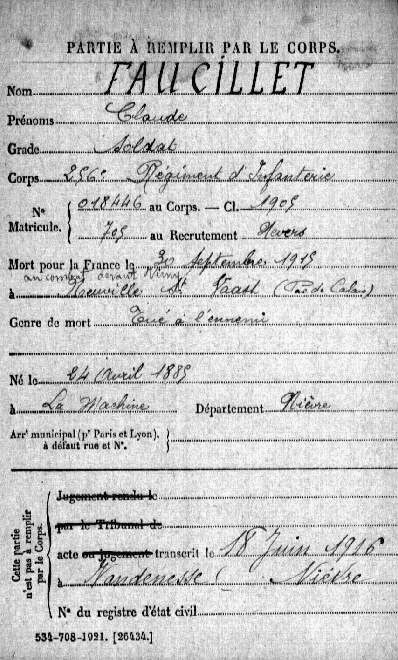 PARTIE À REMPLIR PAR LE CORPS.
Nom FAUCILLET
Prénoms Claude
Grade Soldat
Corps 256e Régiment d'Infanterie
N° Matricule. { 018446 au Corps. — Cl. 1905
705 au Recrutement Nevers
Mort pour la France le 30 septembre 1915
au combat devant Vimy
à Neuville St Vaast (Pas de Calais)
Genre de mort Tué à l'ennemi
Né le 24 Avril 1885
à La Machine Département Nièvre
Arrt municipal (pr Paris et Lyon), à défaut rue et N°. }
Cette partie n'est pas à remplir par le Corps. {
Jugement rendu le
par le Tribunal de
acte ou jugement transcrit le 18 Juin 1916
à Vandenesse ( Nièvre
N° du registre d'état civil
534-708-1921. [26434.]